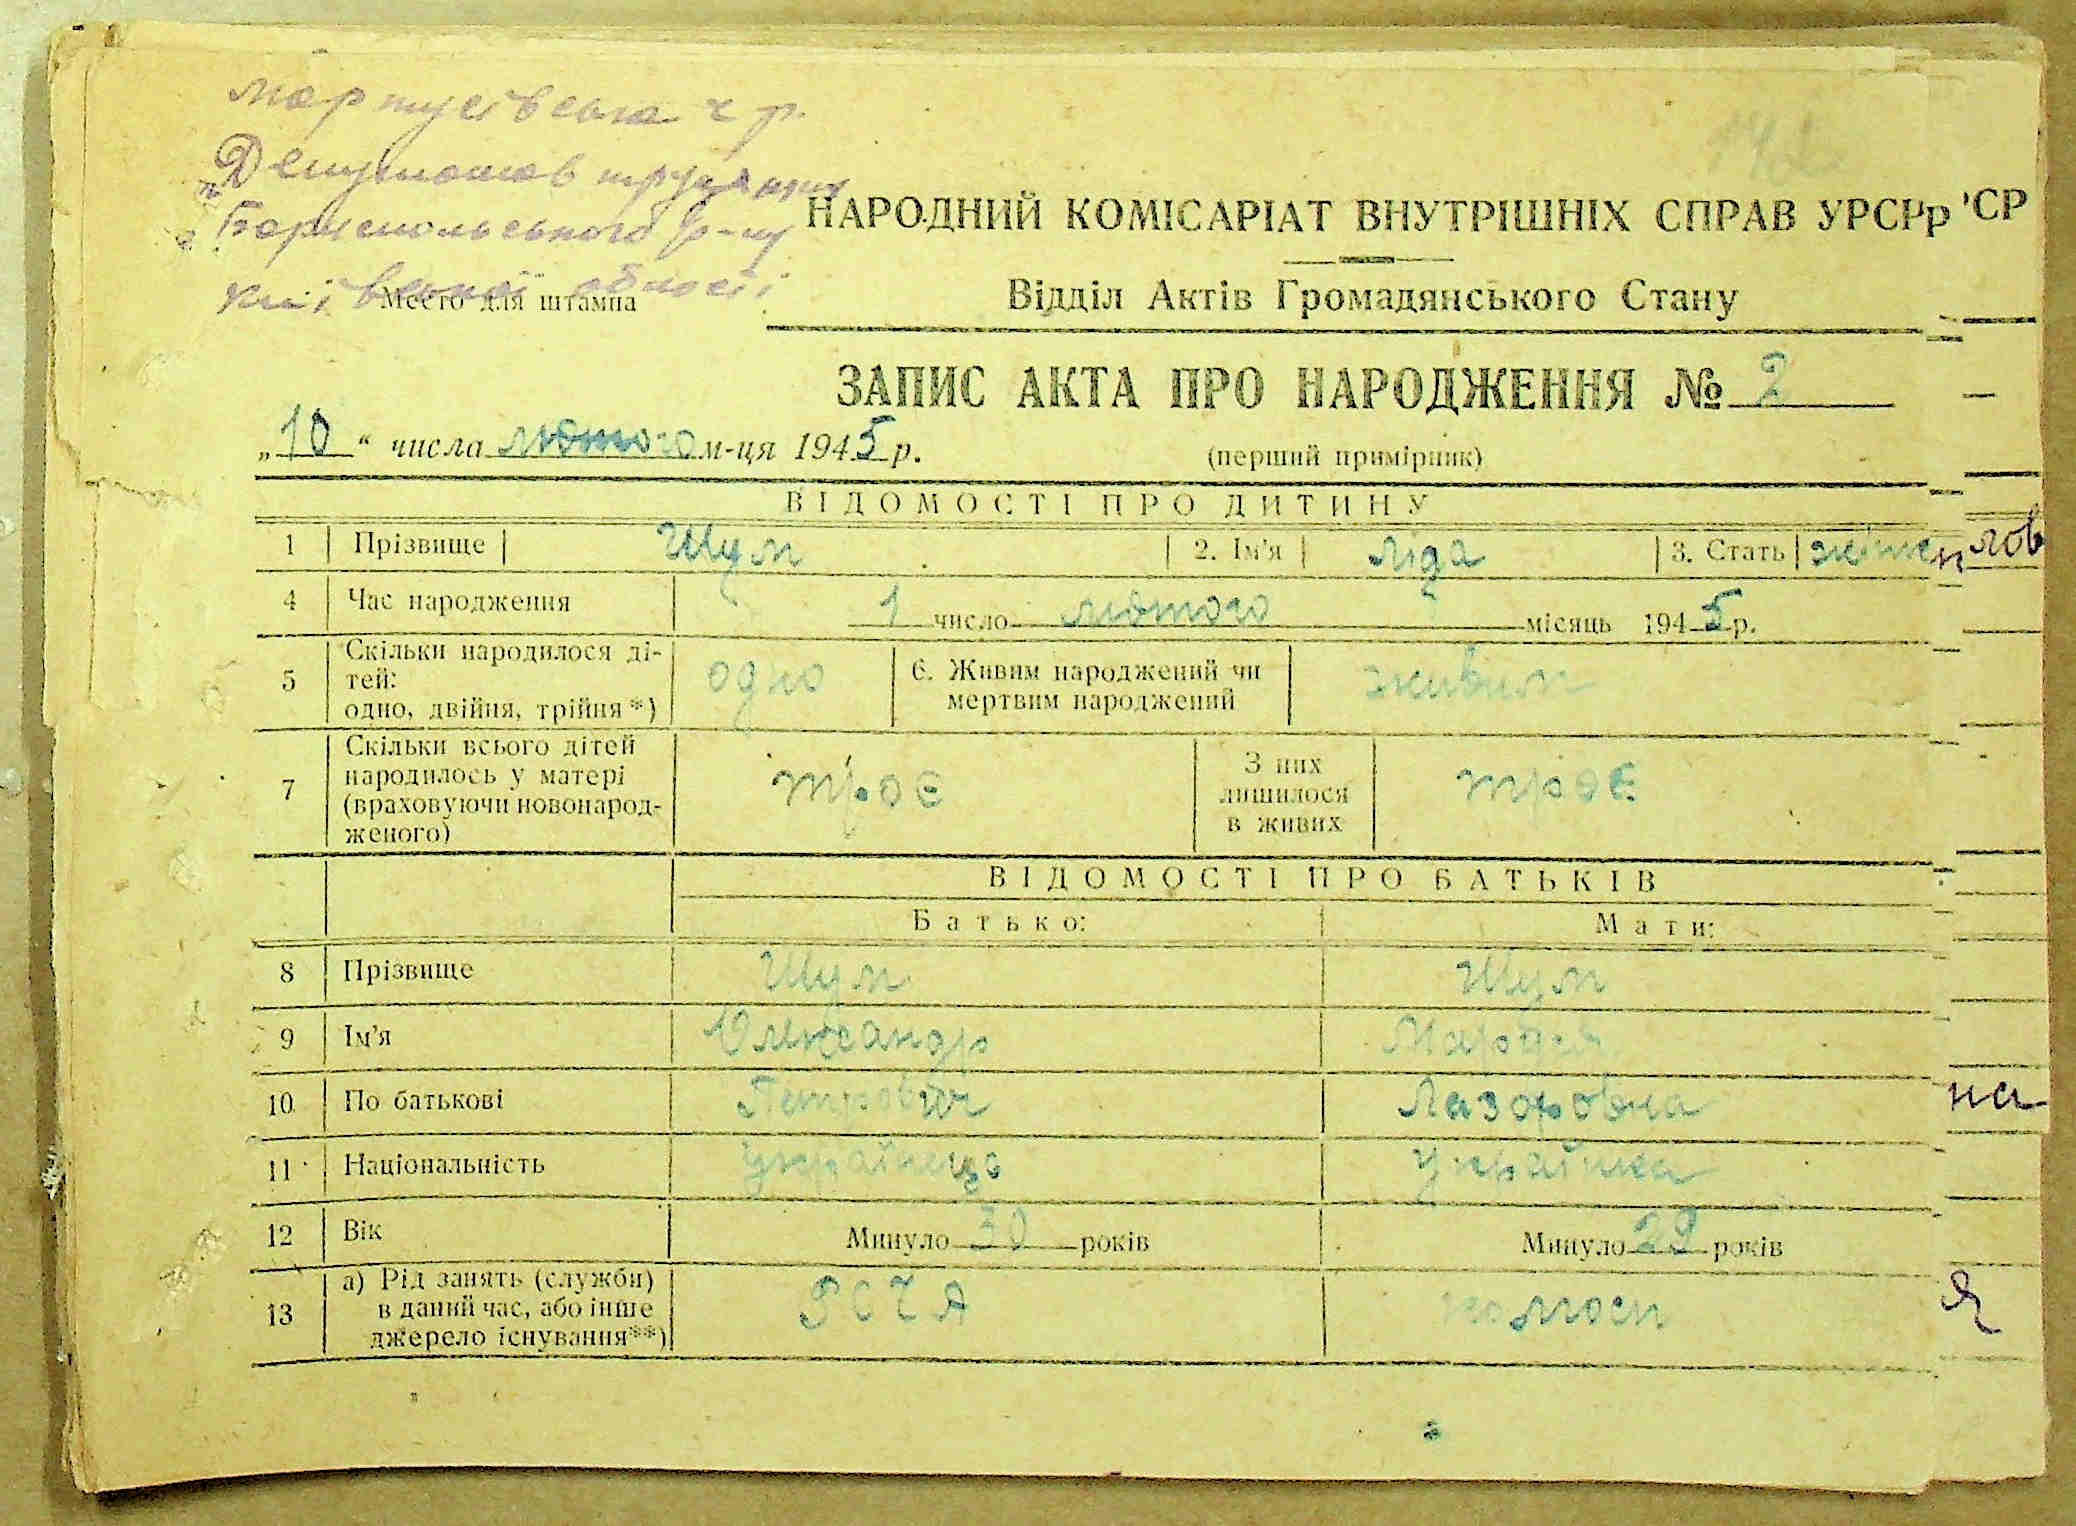 Мартусівська
Депутатов трудящих
Бориспольського р-ну
Київської області
НАРОДНИЙ КОМІСАРІАТ ВНУТРІШНІХ СПРАВ УРСР
Место для штампа
Відділ Актів Громадянського Стану
ЗАПИС АКТА ПРО НАРОДЖЕННЯ № 2
„10“ числа лютого м-ця 1945 р.
(перший примірник)
ВІДОМОСТІ ПРО ДИТИНУ
1 Прізвище Шум 2. Ім'я Ліда 3. Стать
4 Час народження 1 число лютого місяць 1945 р.
5 Скільки народилося ді-
тей:
одно, двійня, трійня *) одно 6. Живим народжений чи
мертвим народжений живим
7 Скільки всього дітей
народилось у матері
(враховуючи новонарод-
женого) троє З них
лишилося
в живих троє
ВІДОМОСТІ ПРО БАТЬКІВ
Батько: Мати:
8 Прізвище Шум Шум
9 Ім'я Олександр
10 По батькові Петрович Лазоровна
11 Національність українець українка
12 Вік Минуло 30 років Минуло 29 років
13 а) Рід занять (служби)
в даний час, або інше
джерело існування**)